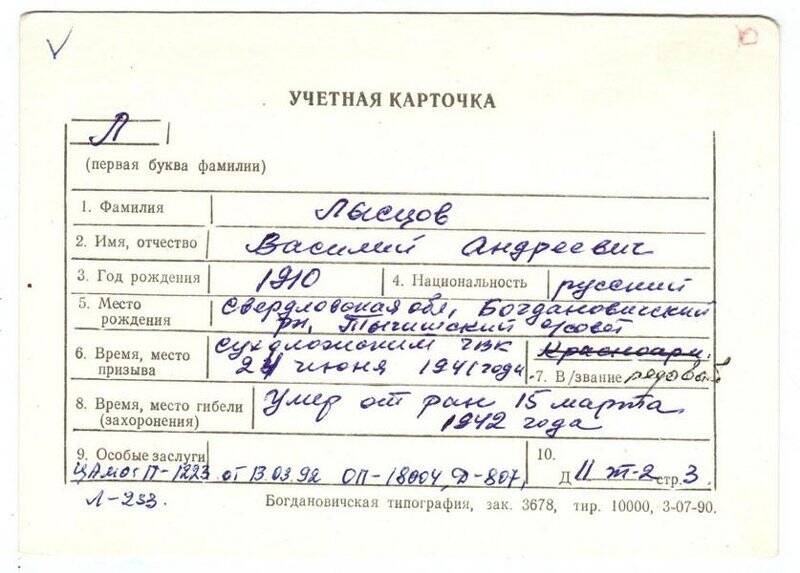 УЧЕТНАЯ КАРТОЧКА
Л
(первая буква фамилии)
1. Фамилия Лысцов
2. Имя, отчество Василий Андреевич
3. Год рождения 1910 4. Национальность русский
5. Место рождения Свердловская обл, Богдановичский
рн, Тыгишский с/совет
6. Время, место призыва Сухоложским ГВК
24 июня 1941 года
Красноарм.
7. В/звание рядовой
8. Время, место гибели (захоронения) Умер от ран 15 марта
1942 года
9. Особые заслуги
ЦАМО П-1223 от 13.03.92 ОП-18004, Д-807,
Л-233.
10.
Д II т-2 стр. 3.
Богдановичская типография, зак. 3678, тир. 10000, 3-07-90.